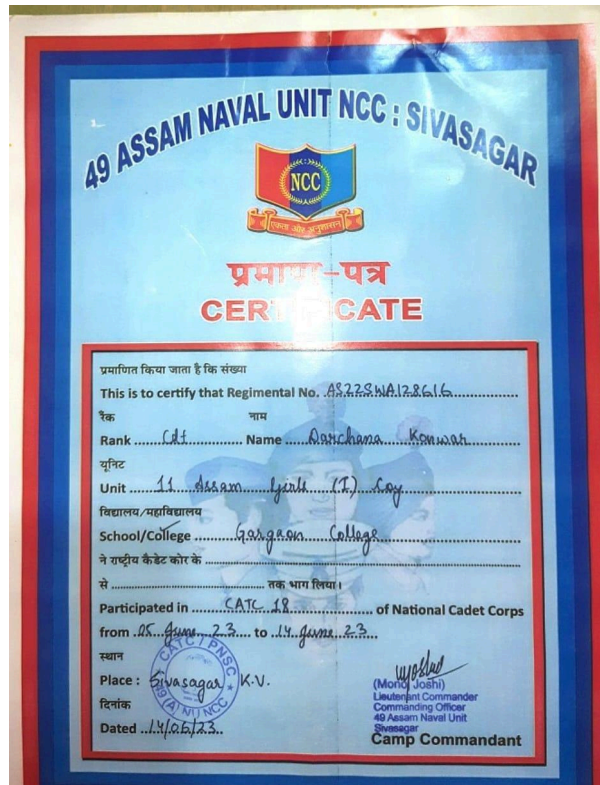 49 ASSAM NAVAL UNIT NCC : SIVASAGAR
NCC
एकता और अनुशासन
प्रमाण-पत्र
CERTIFICATE
प्रमाणित किया जाता है कि संख्या
This is to certify that Regimental No. AS22SWA128616
रैंक नाम
Rank Cdt Name Darchana Konwar
यूनिट
Unit 11 Assam Girls (I) Coy
विद्यालय/महाविद्यालय
School/College Gargaon College
ने राष्ट्रीय कैडेट कोर के
से तक भाग लिया।
Participated in CATC 18 of National Cadet Corps
from 05 June 23 to 14 June 23
स्थान
Place : Sivasagar K.V.
CATC / PNSC
49 (A) NU NCC
दिनांक
Dated 14/06/23
(Monoj Joshi)
Lieutenant Commander
Commanding Officer
49 Assam Naval Unit
Sivasagar
Camp Commandant